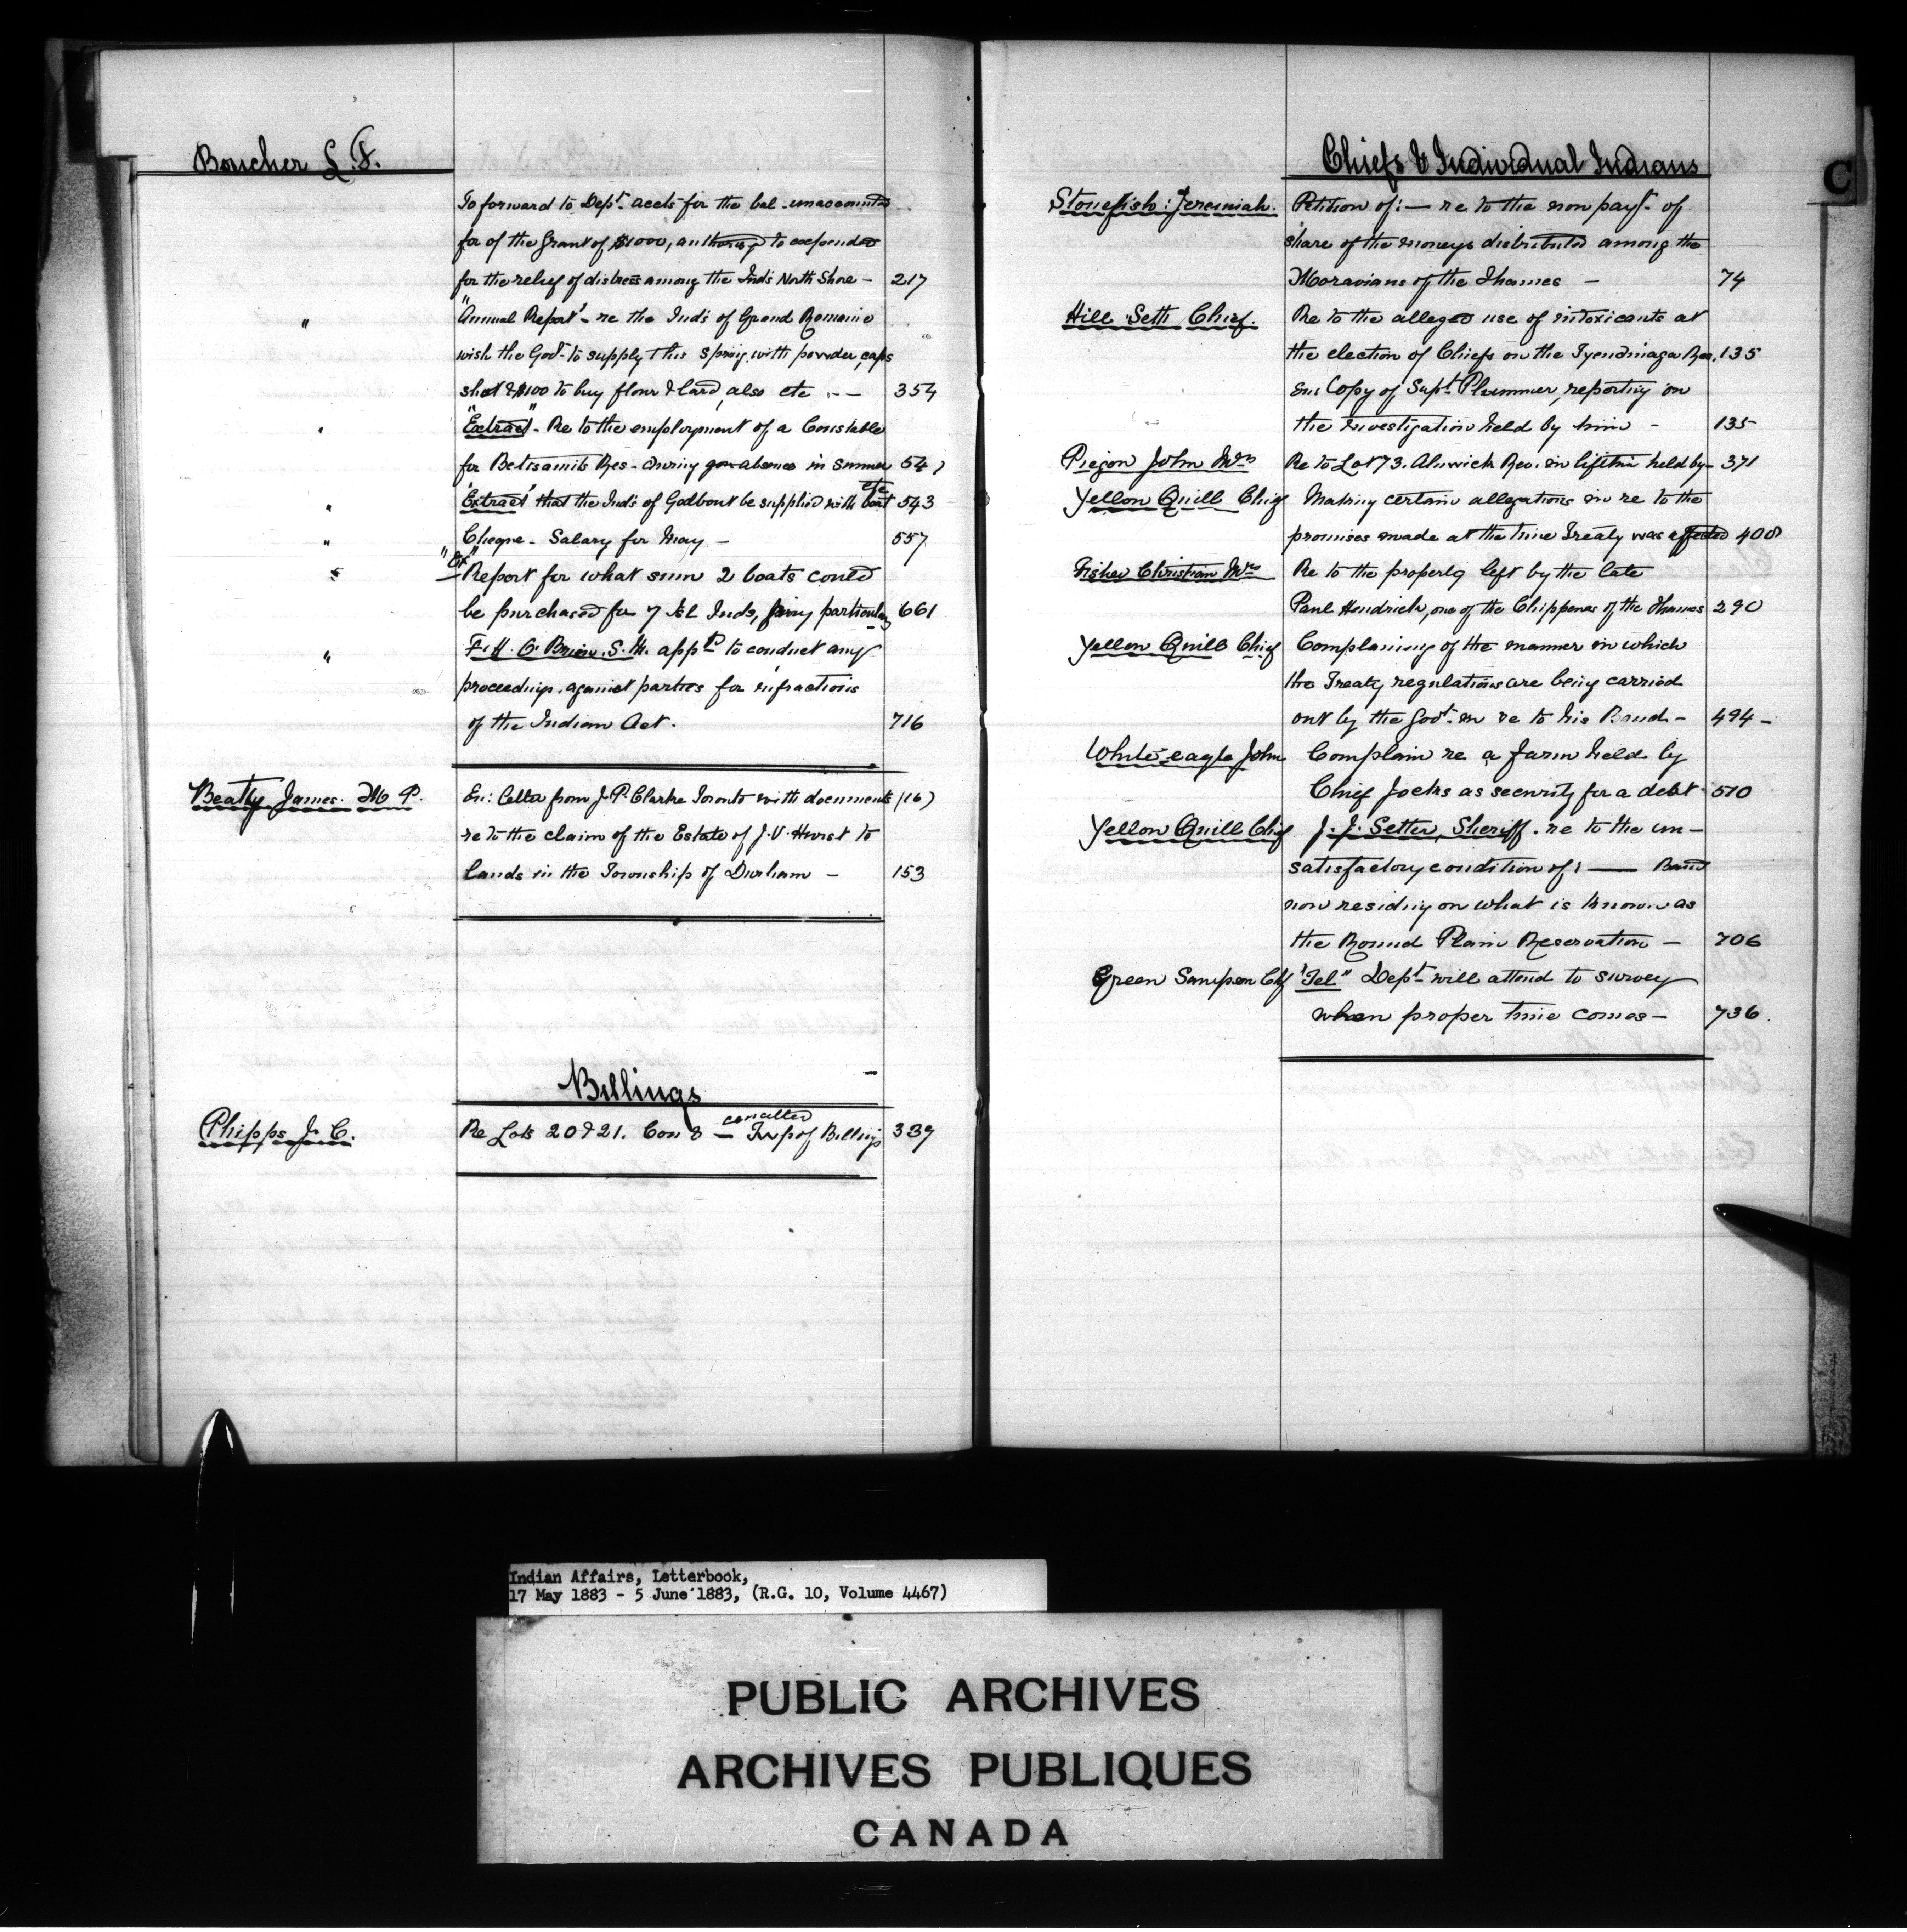 Boucher L. F.
To forward to Dept. accts for the bal. unaccounted
for of the Grant of $1000, authorised to expended
for the relief of distress among the Inds North Shore - 217
" "Annual Report" - re the Inds of Grand Romaine
wish the Govt. to supply this spring with powder, caps
shot & $100 to buy flour & lard, also etc - - 354
" "Extract" - Re to the employment of a Constable
for Betsiamits Res - during absence in summer 547
" "Extract" that the Inds of Godbout be supplied with boat etc 543
" Cheque - Salary for May - 557
" "Ex" Report for what sum 2 boats could
be purchased for 7 Isl. Inds, giving particulars 661
" F. H. O'Brien. S. M. apptd to conduct any
proceedings against parties for infractions
of the Indian Act. 716
Beatty James. M P. En: Letter from J. P. Clarke Toronto with documents
re to the claim of the Estate of J. V. Hurst to
lands in the Township of Durham - 153
Billings
Phipps J. C. Re Lots 20 & 21. Con 8 - cancelled Twp of Billings 339
Chiefs & Individual Indians
C
Stonefish: Jeremiah. Petition of: — re to the non payt. of
share of the moneys distributed among the
Moravians of the Thames - 74
Hill Seth Chief. Re to the alleged use of intoxicants at
the election of Chiefs on the Tyendinaga Res. 135
En: Copy of Supt. Plummer, reporting on
the investigation held by him - 135
Piegon John Mrs Re to Lot 73. Alnwick Res. held by - 371
Yellow Quill Chief Making certain allegations in re to the
promises made at the time Treaty was effected 408
Fisher Christian Mrs Re to the property left by the late
Paul Hendrick, one of the Chippewas of the Thames 290
Yellow Quill Chief Complaining of the manner in which
the Treaty regulations are being carried
out by the Govt. in re to his Band - 494 -
White-eagle John Complain re a farm held by
Chief Jocks as security for a debt 510
Yellow Quill Chief J. J. Setter, Sheriff. re to the un-
satisfactory condition of: — Band
now residing on what is known as
the Round Plain Reservation - 706
Green Sampson Chf "Tel" Dept. will attend to survey
when proper time comes - 736.
Indian Affairs, Letterbook,
17 May 1883 - 5 June 1883, (R.G. 10, Volume 4467)
PUBLIC ARCHIVES
ARCHIVES PUBLIQUES
CANADA